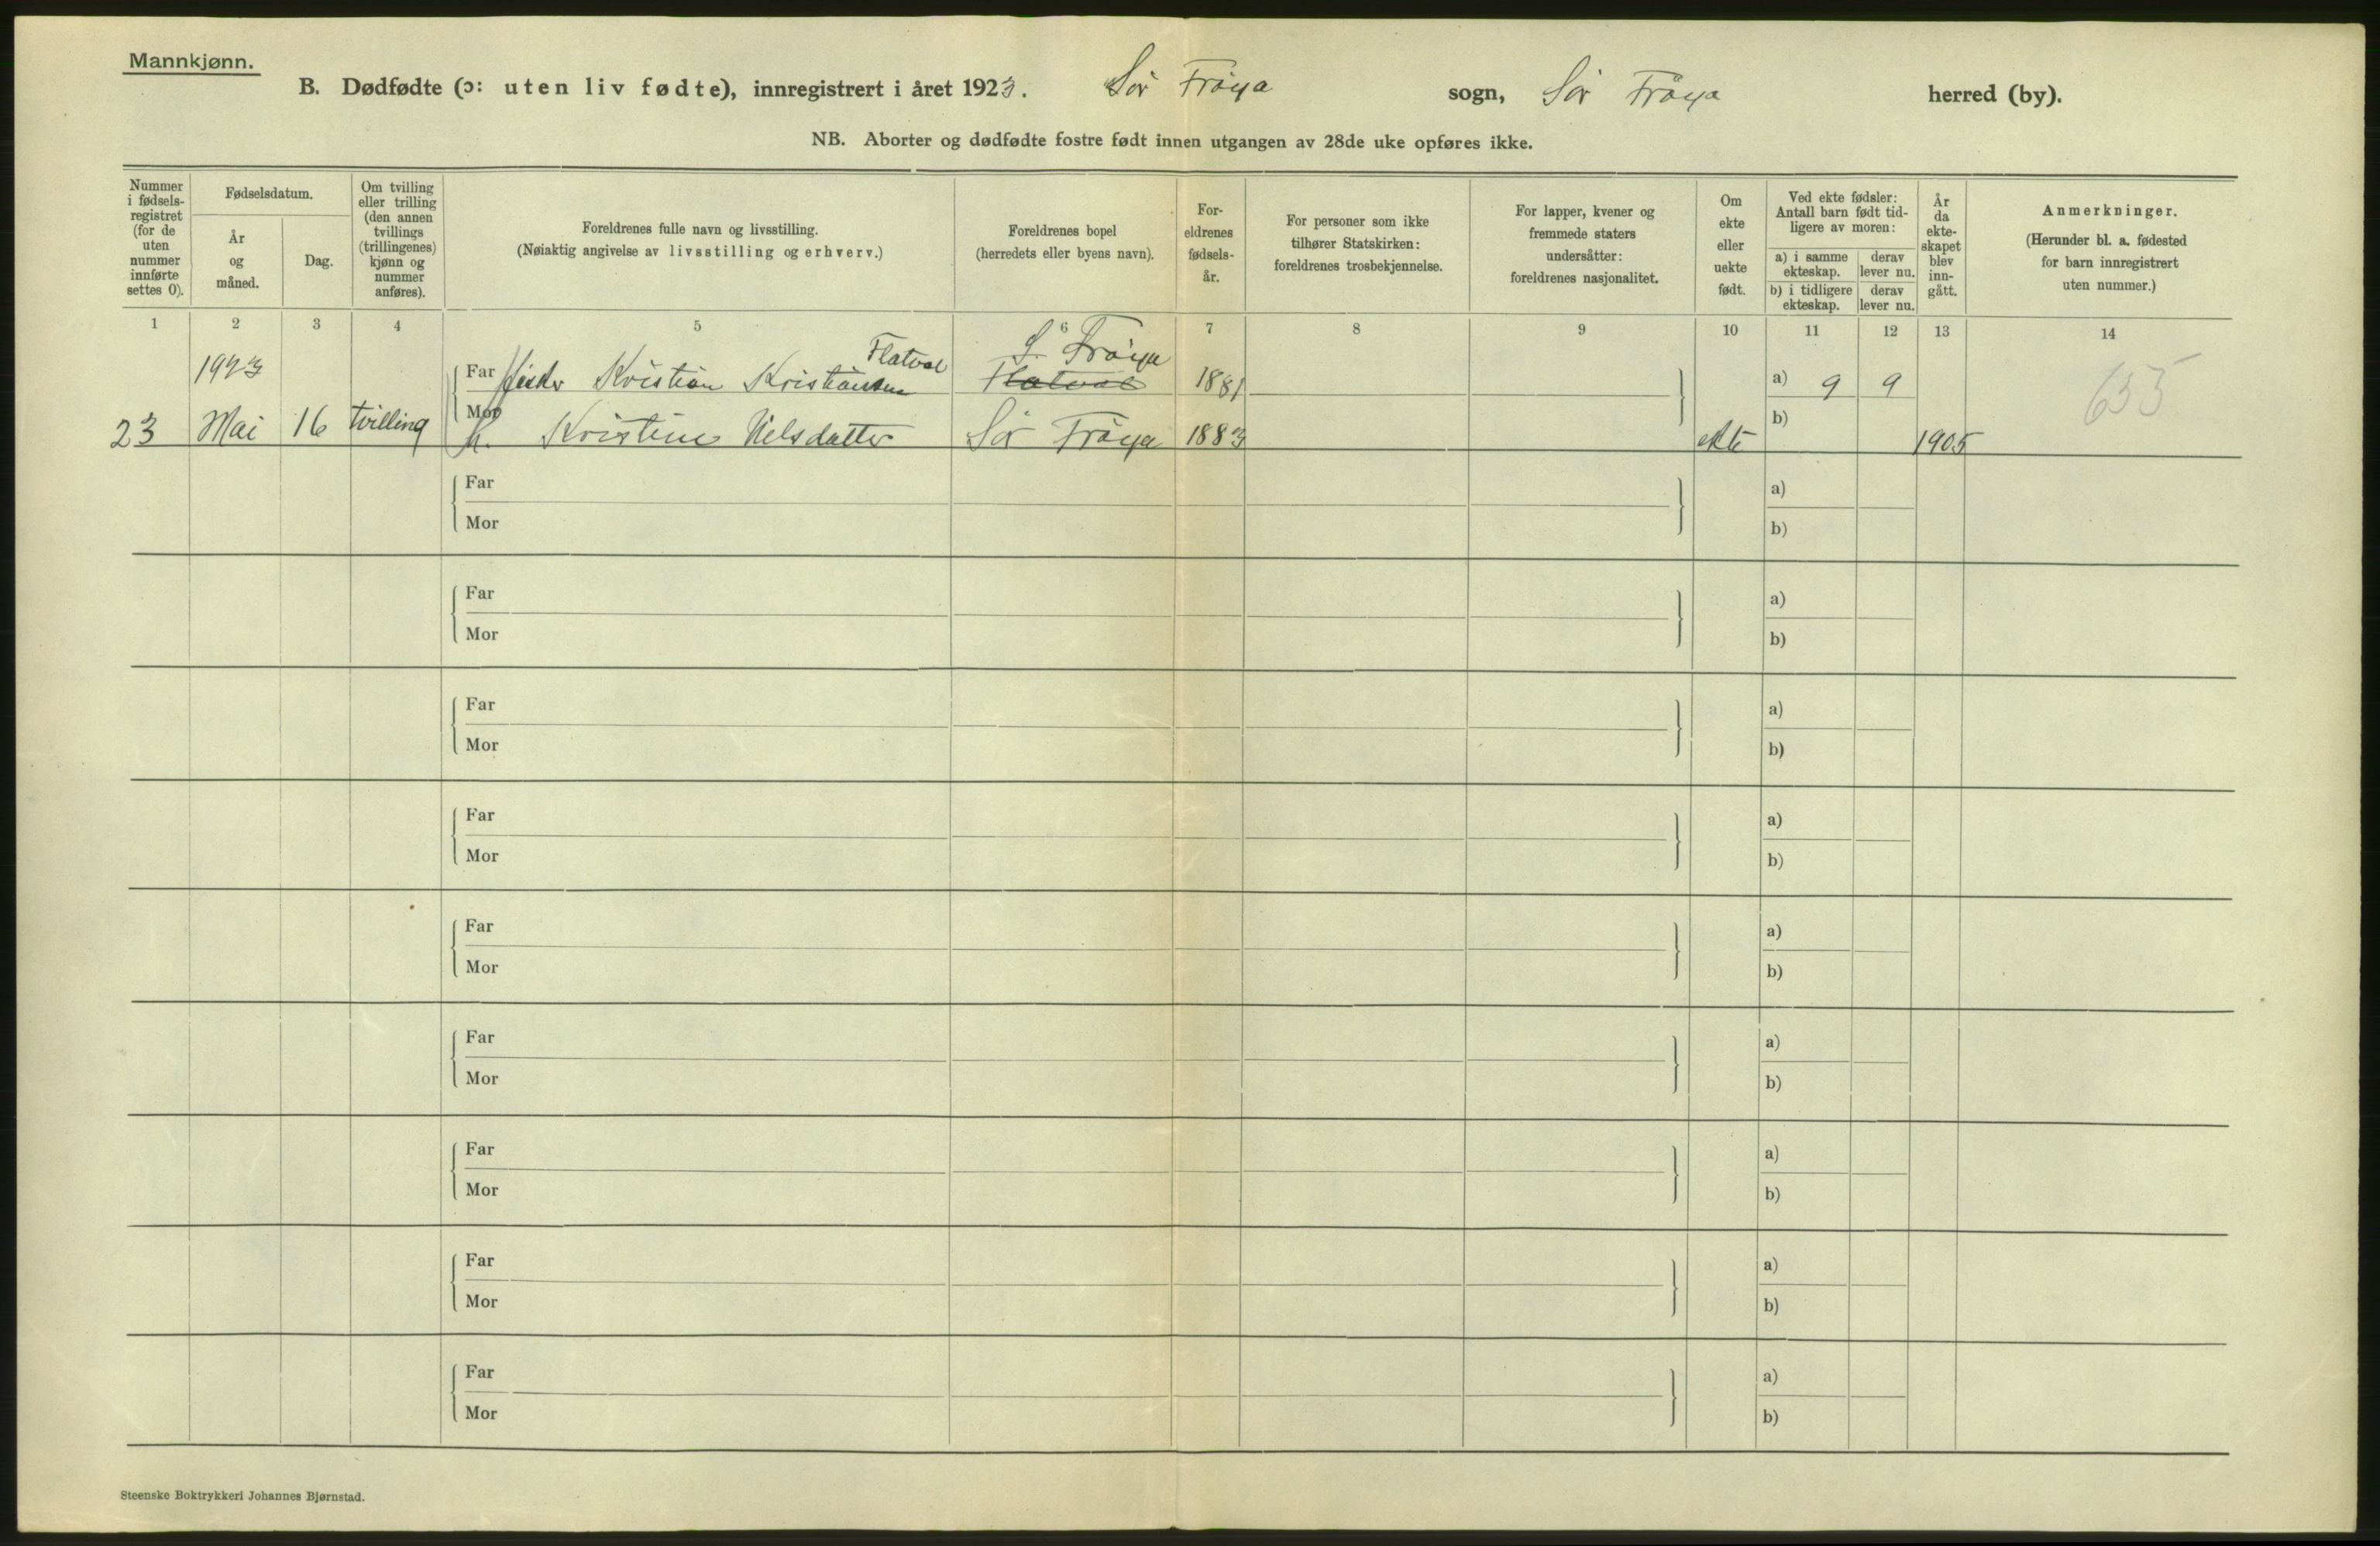 Mannkjønn.
B. Dødfødte (ɔ: uten liv fødte), innregistrert i året 1923. Sör Fröya sogn, Sör Fröya herred (by).
NB. Aborter og dødfødte fostre født innen utgangen av 28de uke opføres ikke.
Nummer i fødsels-registret (for de uten nummer innførte settes 0).
Fødselsdatum.
År og måned.
Dag.
Om tvilling eller trilling (den annen tvillings (trillingenes) kjønn og nummer anføres).
Foreldrenes fulle navn og livsstilling.
(Nøiaktig angivelse av livsstilling og erhverv.)
Foreldrenes bopel
(herredets eller byens navn).
For-eldrenes fødsels-år.
For personer som ikke tilhører Statskirken: foreldrenes trosbekjennelse.
For lapper, kvener og fremmede staters undersåtter: foreldrenes nasjonalitet.
Om ekte eller uekte født.
Ved ekte fødsler: Antall barn født tid-ligere av moren:
a) i samme ekteskap.
derav lever nu.
b) i tidligere ekteskap.
derav lever nu.
År da ekte-skapet blev inn-gått.
Anmerkninger.
(Herunder bl. a. fødested for barn innregistrert uten nummer.)
1 2 3 4 5 6 7 8 9 10 11 12 13 14
Flatval S. Fröya
1923 Far Fisker Kristian Kristiansen Flatval 1881 a) 9 9 655
23 Mai 16 tvilling Mor h. Kristine Nelsdatter Sör Fröya 1883 ekte b) 1905
Far a)
Mor b)
Far a)
Mor b)
Far a)
Mor b)
Far a)
Mor b)
Far a)
Mor b)
Far a)
Mor b)
Far a)
Mor b)
Far a)
Mor b)
Far a)
Mor b)
Steenske Boktrykkeri Johannes Bjørnstad.